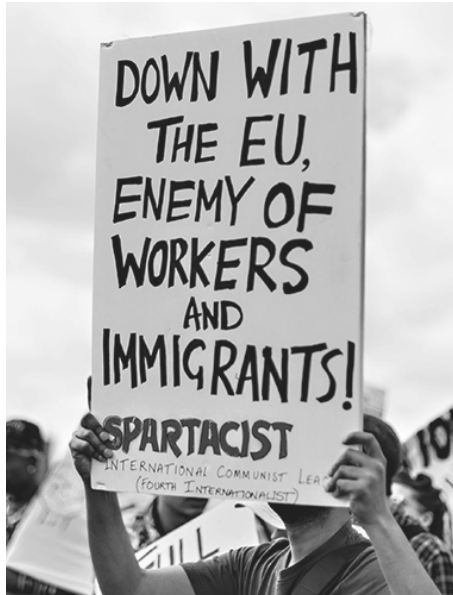 DOWN WITH
THE EU,
ENEMY OF
WORKERS
AND
IMMIGRANTS!
SPARTACIST
INTERNATIONAL COMMUNIST LEA
(FOURTH INTERNATIONALIST)